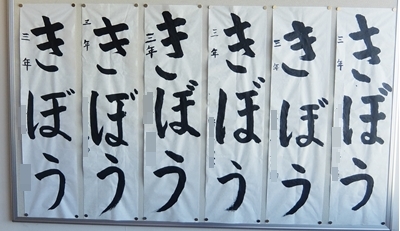 きぼう
三年
きぼう
三年
きぼう
三年
きぼう
三年
きぼう
三年
きぼう
三年